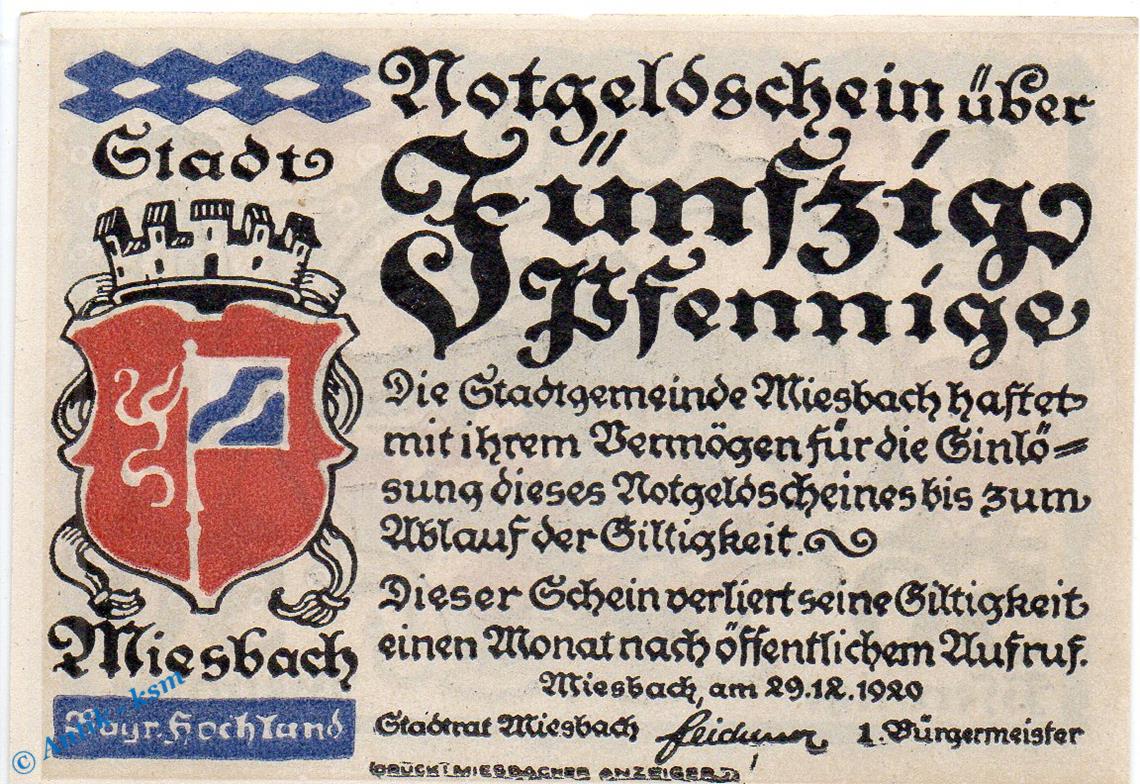 Notgeldschein über
Fünfzig
Pfennige
Die Stadtgemeinde Miesbach haftet
mit ihrem Vermögen für die Einlö=
sung dieses Notgeldscheines bis zum
Ablauf der Giltigkeit.
Dieser Schein verliert seine Giltigkeit
einen Monat nach öffentlichem Aufruf.
Miesbach, am 29.12.1920
Stadtrat Miesbach 1. Bürgermeister
(DRUCK: MIESBACHER ANZEIGER.)
Stadt
Miesbach
Bayr. Hochland
© Antik-ksm